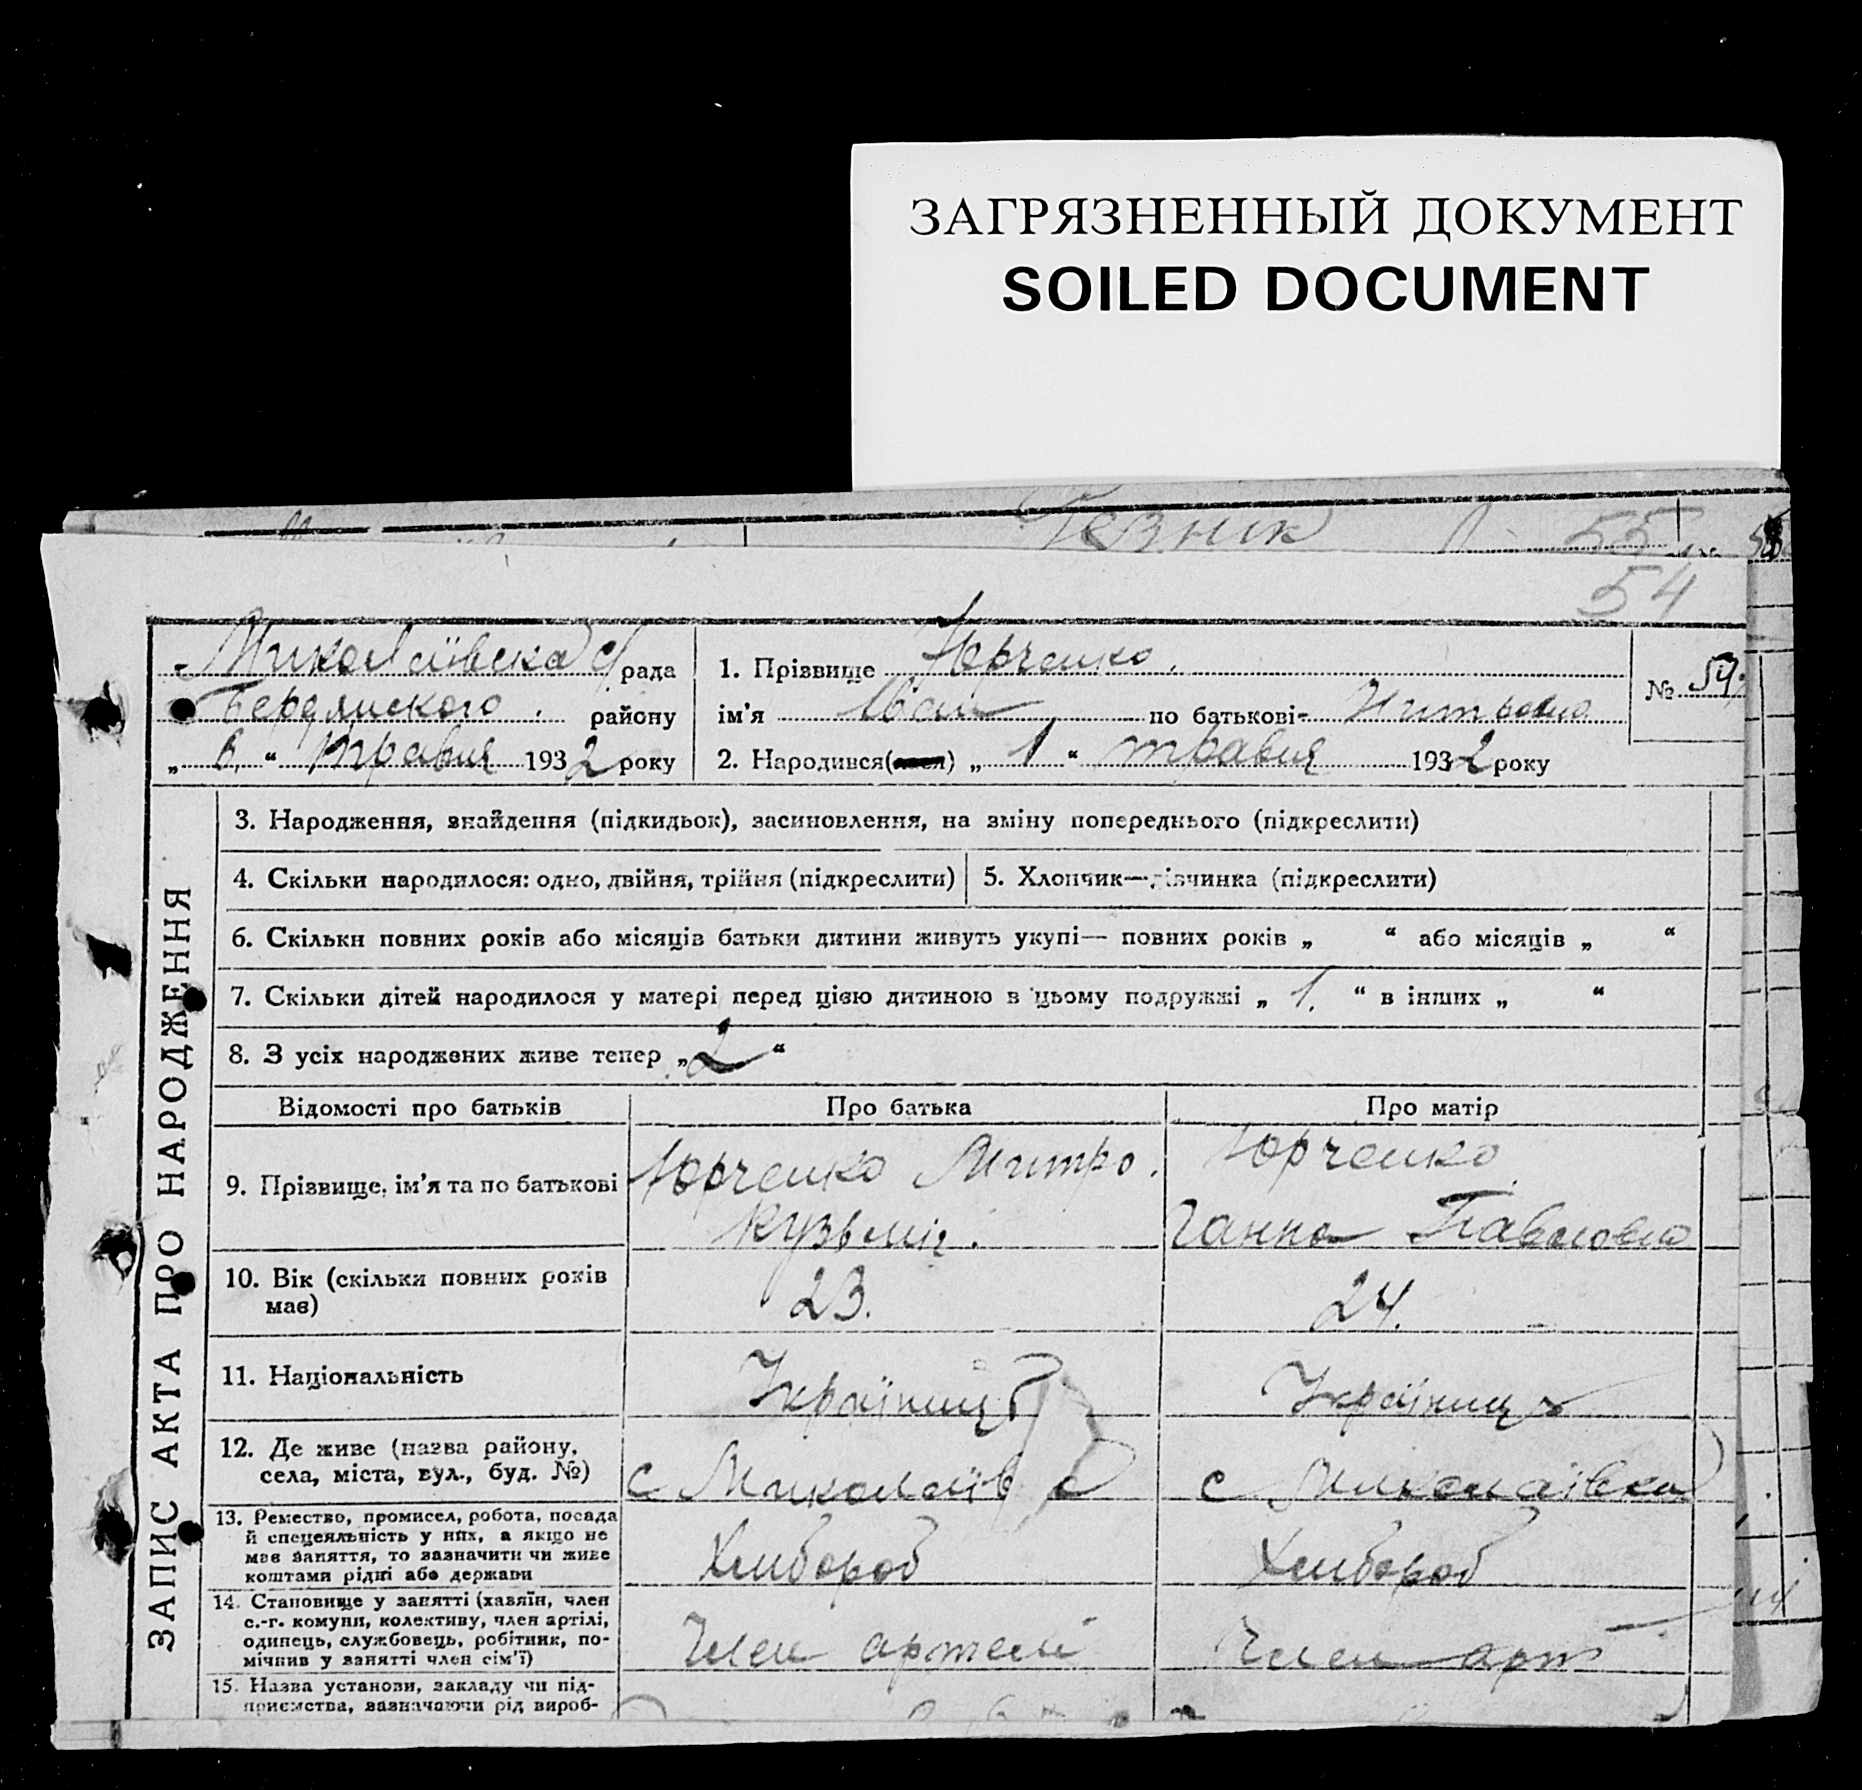 ЗАГРЯЗНЕННЫЙ ДОКУМЕНТ
SOILED DOCUMENT
55
54
Миколаївська с/рада
Бердянского району
„ 6. “ травня 1932 року
1. Прізвище Юрченко.
ім'я Іван по батькові-
2. Народився( ) „ 1 “ травня 1932 року
№ 54.
ЗАПИС АКТА ПРО НАРОДЖЕННЯ
3. Народження, знайдення (підкидьок), засиновлення, на зміну попереднього (підкреслити)
4. Скільки народилося: одно, двійня, трійня (підкреслити)
5. Хлопчик—дівчинка (підкреслити)
6. Скільки повних років або місяців батьки дитини живуть укупі— повних років „ “ або місяців „ “
7. Скільки дітей народилося у матері перед цією дитиною в цьому подружжі „ 1. “ в інших „ “
8. З усіх народжених живе тепер „ 2 “
Відомості про батьків Про батька Про матір
9. Прізвище, ім'я та по батькові
Юрченко Митро.
Кузьмич.
Юрченко
Ганна Павловна
10. Вік (скільки повних років
має)
23.
24.
11. Національність
Українец
Українц
12. Де живе (назва району,
села, міста, вул., буд. №)
с Миколаїв
с Миколаївка
13. Ремество, промисел, робота, посада
й спецеяльність у них, а якщо не
має заняття, то зазначити чи живе
коштами рідні або держави
Хлибороб
Хлибороб
14. Становище у занятті (хазяїн, член
с.-г. комуни, колективу, член артілі,
одинець, службовець, робітник, по-
мічник у занятті член сім'ї)
Член артелі
Член арт
15. Назва установи, закладу чи під-
приємства, зазначаючи рід вироб-